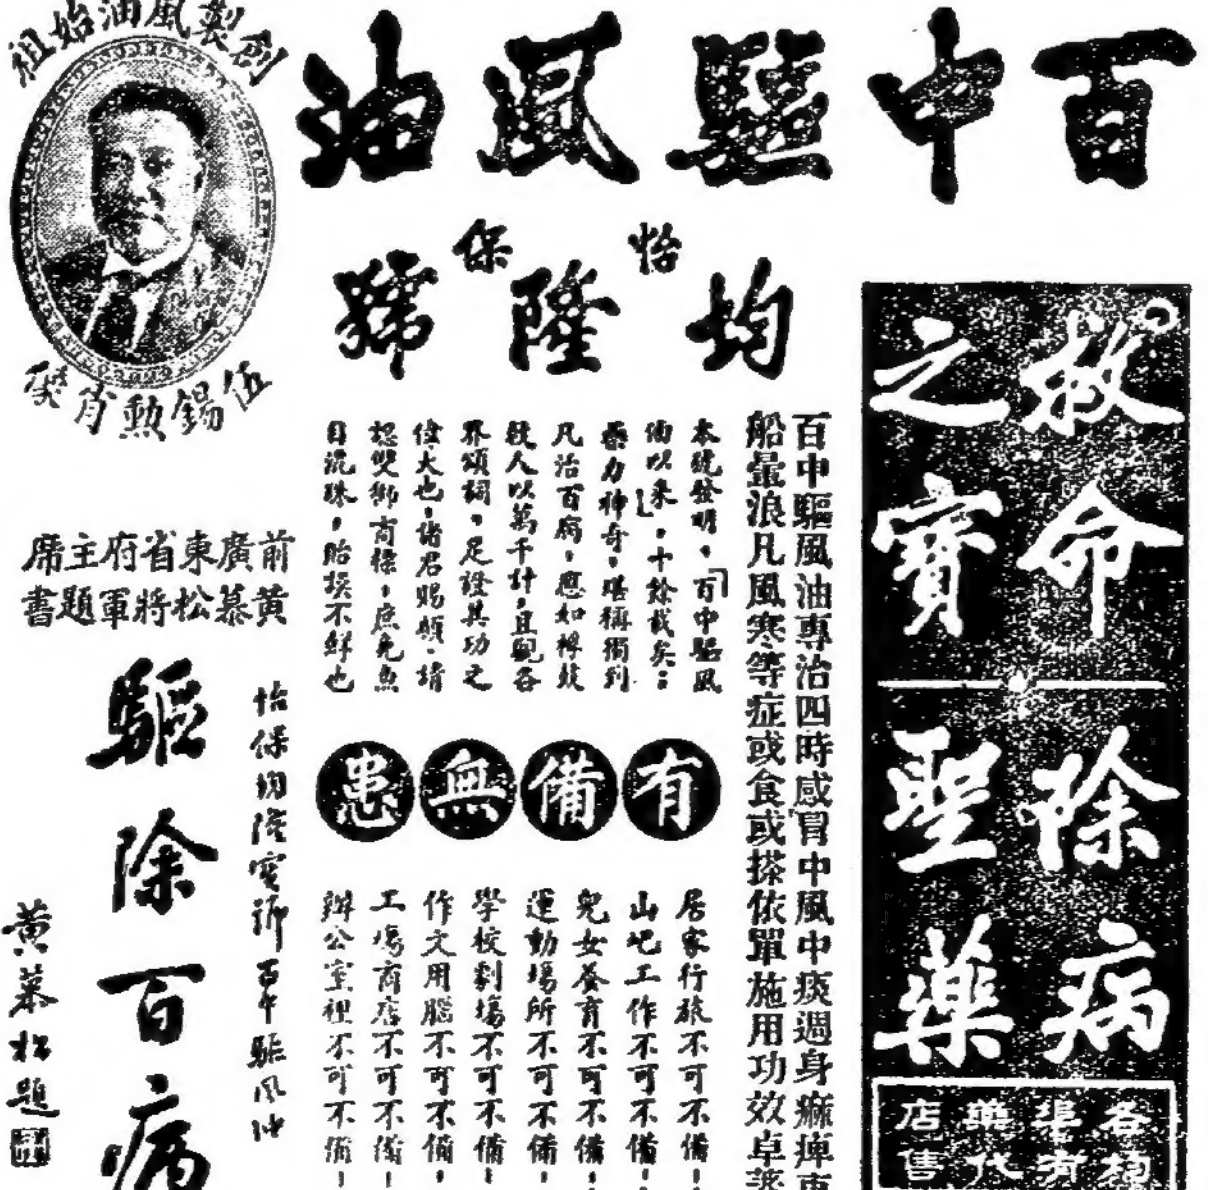 百中驅風油
怡保
均隆號
救命之寶
除病聖藥
各埠均有藥店代售
百中驅風油專治四時感冒中風中痰週身痲痺
船暈浪凡風寒等症或食或搽依單施用功效卓
本號發明，「百中驅風
油以來」，十餘載矣；
藥力神奇，堪稱獨到
凡治百病，應如桴鼓
救人以萬千計，且觀各
界頌詞，足證其功之
偉大也，諸君賜顧，請
認雙獅商標，庶免魚
目混珠，貽誤不鮮也
有備無患
居家行旅不可不備！
山芭工作不可不備！
兒女養育不可不備，
運動場所不可不備，
學校劇場不可不備！
作文用腦不可不備，
工場商店不可不備！
辦公室裡不可不備！
創製風油始祖
伍錫勲肖像
前廣東省府主席
黃慕松將軍題書
怡保均隆寶號百中驅風油
驅除百病
黃慕松題